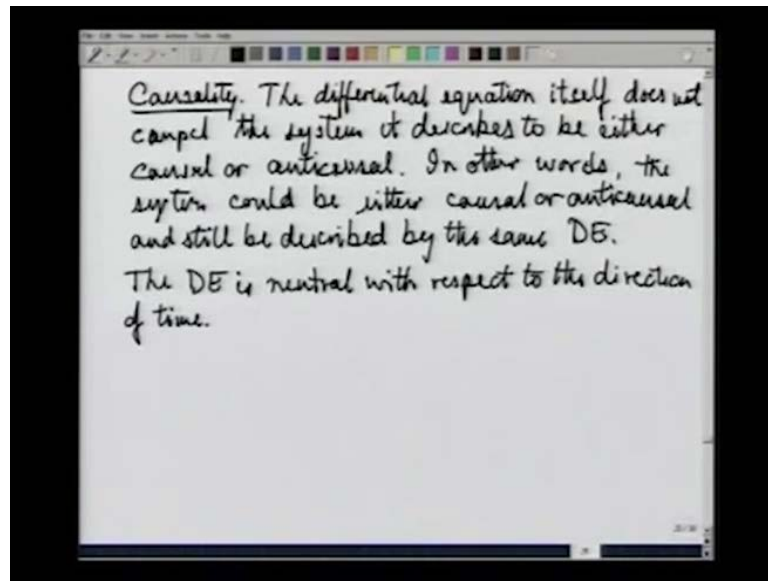 Causality. The differential equation itself does not
compel the system it describes to be either
causal or anticausal. In other words, the
system could be either causal or anticausal
and still be described by the same DE.
The DE is neutral with respect to the direction
of time.